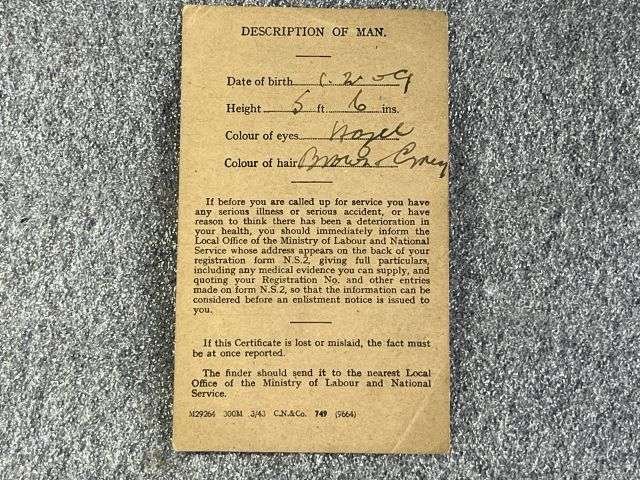 DESCRIPTION OF MAN.
Date of birth
Height 5 ft. 6 ins.
Colour of eyes Hazel
Colour of hair Brown & Grey
If before you are called up for service you have
any serious illness or serious accident, or have
reason to think there has been a deterioration in
your health, you should immediately inform the
Local Office of the Ministry of Labour and National
Service whose address appears on the back of your
registration form N.S.2, giving full particulars,
including any medical evidence you can supply, and
quoting your Registration No. and other entries
made on form N.S.2, so that the information can be
considered before an enlistment notice is issued to
you.
If this Certificate is lost or mislaid, the fact must
be at once reported.
The finder should send it to the nearest Local
Office of the Ministry of Labour and National
Service.
M29264 300M 3/43 C.N.&Co. 749 (9664)